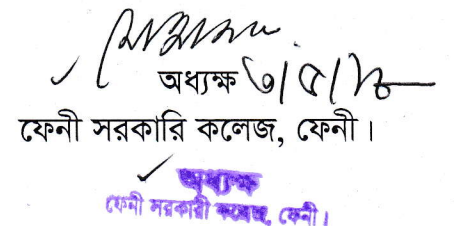 অধ্যক্ষ ৩/৫/১৮
ফেনী সরকারি কলেজ, ফেনী।
অধ্যক্ষ
ফেনী সরকারী কলেজ, ফেনী।